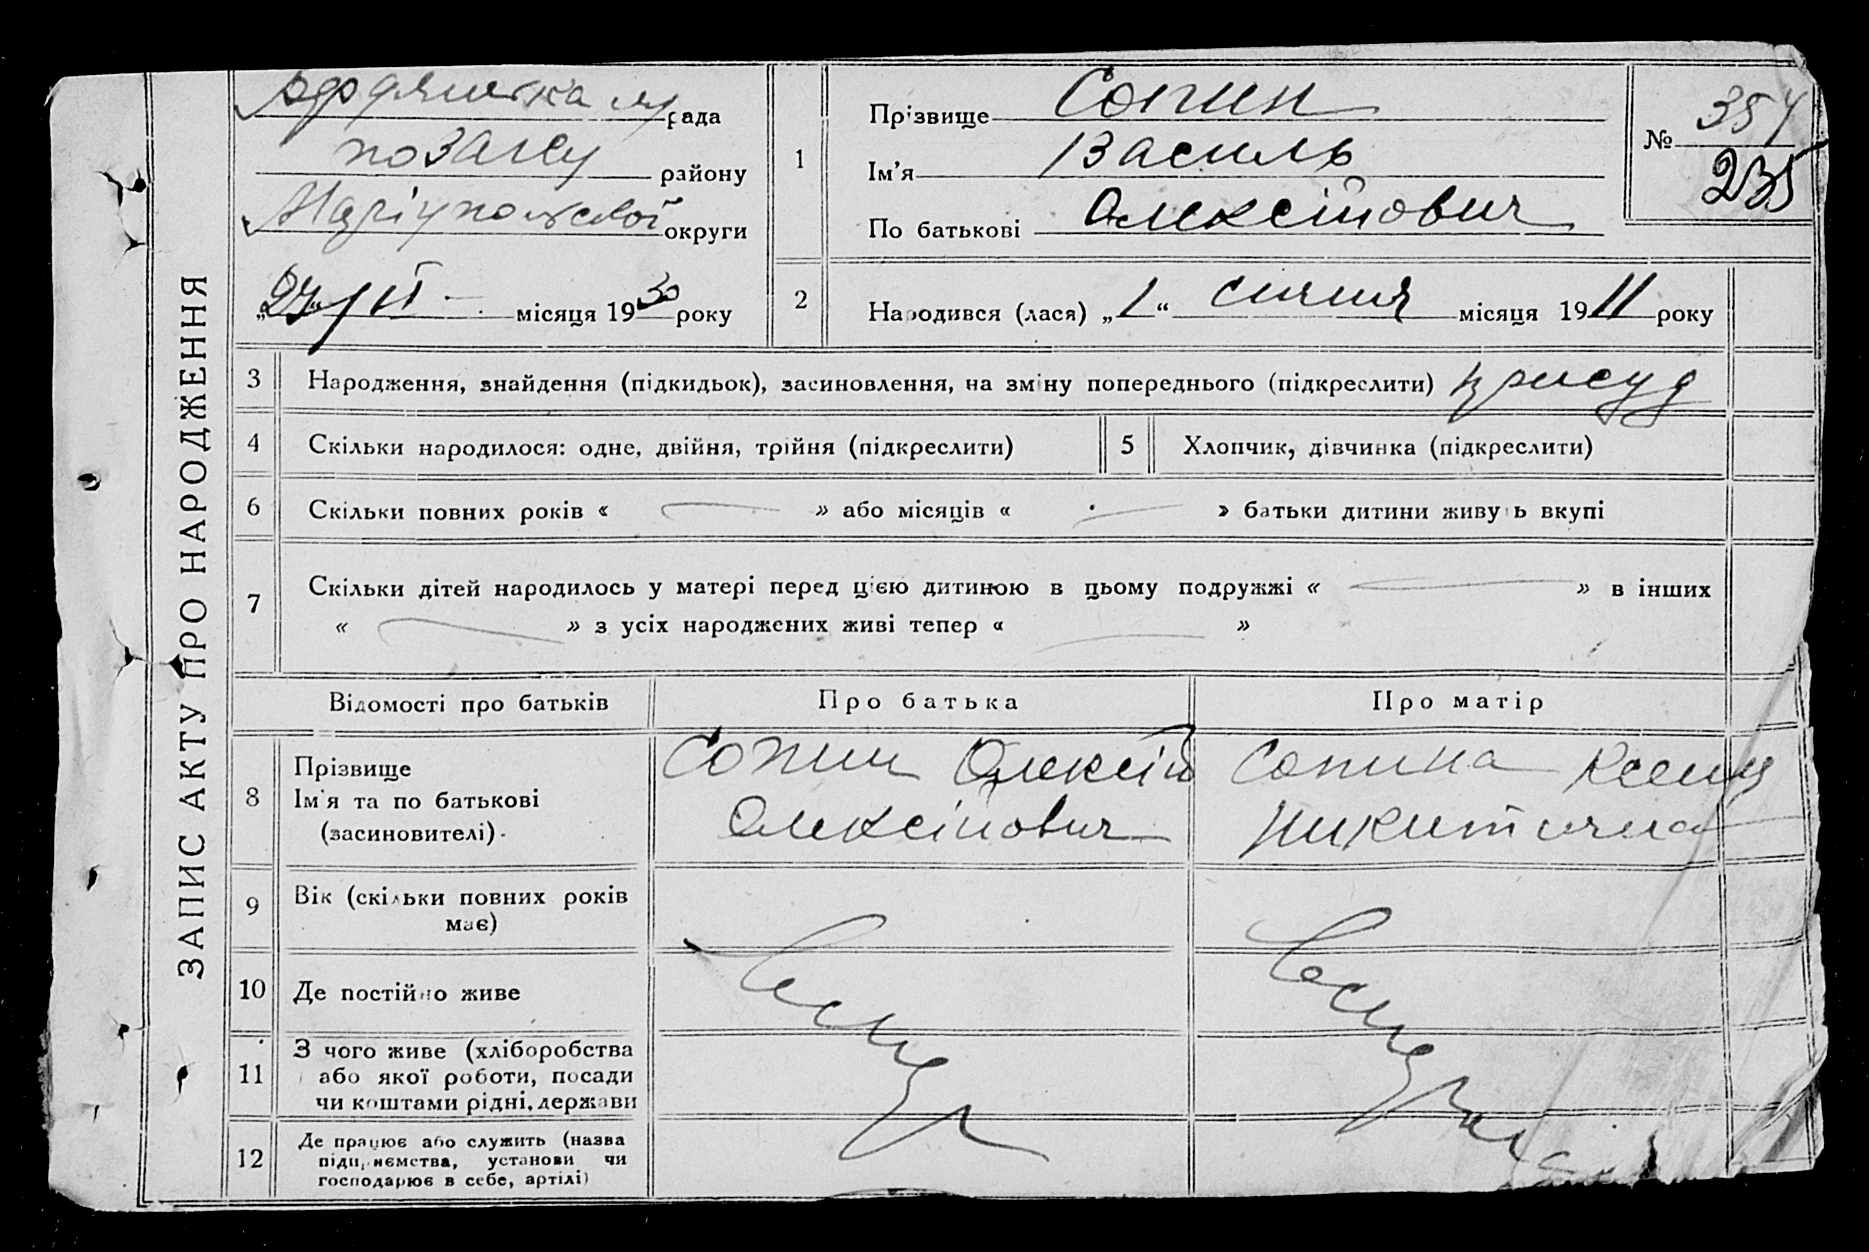 ЗАПИС АКТУ ПРО НАРОДЖЕННЯ
рада
району
Маріупольської округи
„27“ VI місяця 1930 року
1
Прізвище Сопин
Ім'я Василь
По батькові Олексійович
№ 354
235
2
Народився (лася) „1“ січня місяця 1911 року
3 Народження, знайдення (підкидьок), засиновлення, на зміну попереднього (підкреслити) присуд
4 Скільки народилося: одне, двійня, трійня (підкреслити)
5 Хлопчик, дівчинка (підкреслити)
6 Скільки повних років « — » або місяців « — » батьки дитини живуть вкупі
7 Скільки дітей народилось у матері перед цією дитиною в цьому подружжі « — » в інших
« — » з усіх народжених живі тепер « — »
Відомості про батьків
Про батька
Про матір
8
Прізвище
Ім'я та по батькові
(засиновителі)
Сопин Олексій
Олексійович
Сопина Ксенія
Никитична
9 Вік (скільки повних років
має)
10 Де постійно живе
11 З чого живе (хліборобства
або якої роботи, посади
чи коштами рідні, держави
12 Де працює або служить (назва
підприємства, установи чи
господарює в себе, артілі)